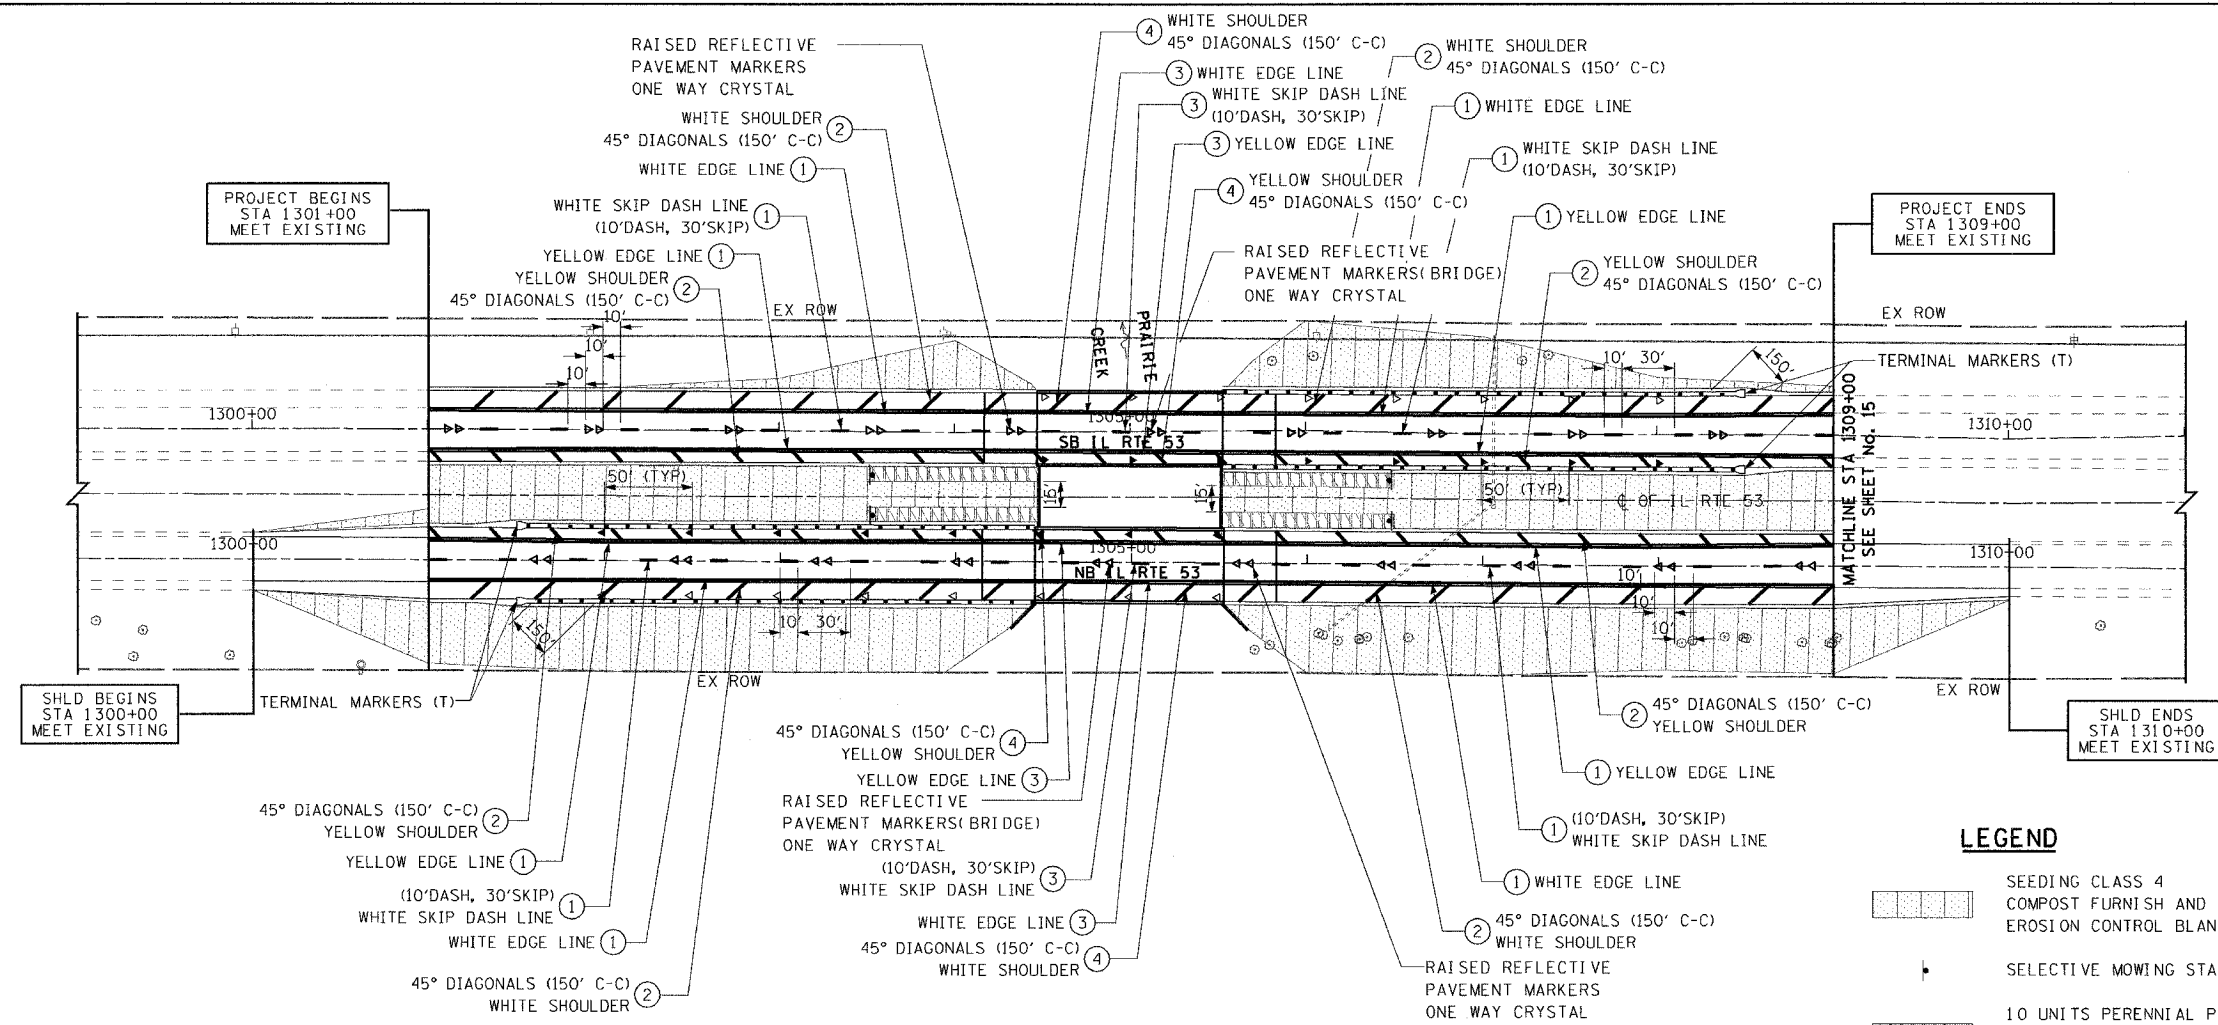 RAISED REFLECTIVE
PAVEMENT MARKERS
ONE WAY CRYSTAL
WHITE SHOULDER
45° DIAGONALS (150' C-C)
2
WHITE EDGE LINE 1
WHITE SKIP DASH LINE
(10'DASH, 30'SKIP)
1
YELLOW EDGE LINE 1
YELLOW SHOULDER
45° DIAGONALS (150' C-C)
2
4
WHITE SHOULDER
45° DIAGONALS (150' C-C)
3 WHITE EDGE LINE
3
WHITE SKIP DASH LINE
(10'DASH, 30'SKIP)
3 YELLOW EDGE LINE
4
YELLOW SHOULDER
45° DIAGONALS (150' C-C)
RAISED REFLECTIVE
PAVEMENT MARKERS(BRIDGE)
ONE WAY CRYSTAL
2
WHITE SHOULDER
45° DIAGONALS (150' C-C)
1 WHITE EDGE LINE
1
WHITE SKIP DASH LINE
(10'DASH, 30'SKIP)
1 YELLOW EDGE LINE
2
YELLOW SHOULDER
45° DIAGONALS (150' C-C)
PROJECT BEGINS
STA 1301+00
MEET EXISTING
PROJECT ENDS
STA 1309+00
MEET EXISTING
EX ROW
EX ROW
10'
10'
10'
CREEK
PRAIRIE
10' 30'
150'
TERMINAL MARKERS (T)
1300+00
1305+00
1310+00
SB IL RTE 53
50' (TYP)
15'
15'
50' (TYP)
℄ OF IL RTE 53
MATCHLINE STA 1309+00
SEE SHEET No. 15
1300+00
1305+00
1310+00
NB IL RTE 53
10'
10'
10'
150'
10' 30'
EX ROW
EX ROW
TERMINAL MARKERS (T)
SHLD BEGINS
STA 1300+00
MEET EXISTING
SHLD ENDS
STA 1310+00
MEET EXISTING
45° DIAGONALS (150' C-C)
YELLOW SHOULDER
2
YELLOW EDGE LINE 1
(10'DASH, 30'SKIP)
WHITE SKIP DASH LINE
1
WHITE EDGE LINE 1
45° DIAGONALS (150' C-C)
WHITE SHOULDER
2
45° DIAGONALS (150' C-C)
YELLOW SHOULDER
4
YELLOW EDGE LINE 3
RAISED REFLECTIVE
PAVEMENT MARKERS(BRIDGE)
ONE WAY CRYSTAL
(10'DASH, 30'SKIP)
WHITE SKIP DASH LINE
3
WHITE EDGE LINE 3
45° DIAGONALS (150' C-C)
WHITE SHOULDER
4
2
45° DIAGONALS (150' C-C)
YELLOW SHOULDER
1 YELLOW EDGE LINE
1
(10'DASH, 30'SKIP)
WHITE SKIP DASH LINE
1 WHITE EDGE LINE
2
45° DIAGONALS (150' C-C)
WHITE SHOULDER
RAISED REFLECTIVE
PAVEMENT MARKERS
ONE WAY CRYSTAL
LEGEND
SEEDING CLASS 4
COMPOST FURNISH AND
EROSION CONTROL BLAN
SELECTIVE MOWING STA
10 UNITS PERENNIAL P